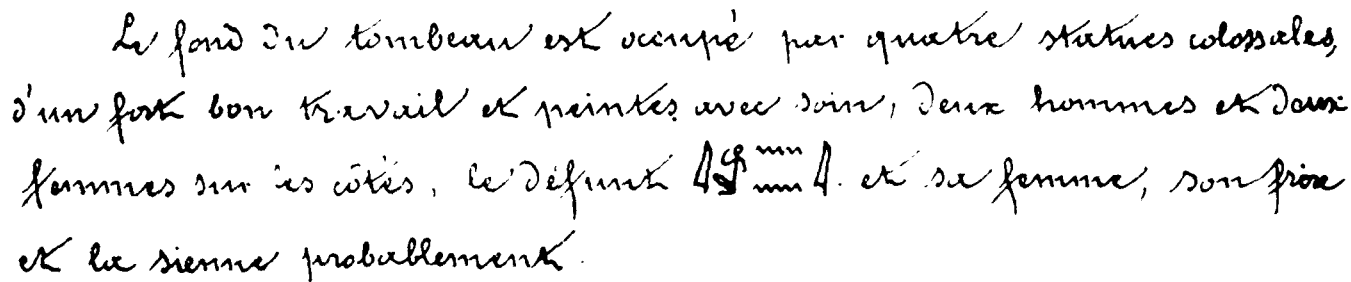 Le fond du tombeau est occupé par quatre statues colossales,
d'un fort bon travail et peintes avec soin, deux hommes et deux
femmes sur les côtés, le défunt et sa femme, son frère
et la sienne probablement.